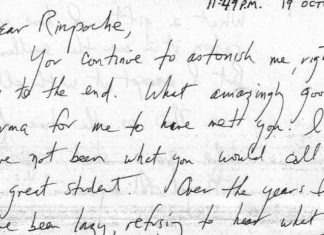 11:49 P.M. 19 Oct
ear Rinpoche,
You continue to astonish me, righ
to the end. What amazingly goo
rma for me to have met you! I
ve not been what you would call
great student. Over the years I
ve been lazy, refusing to hear what